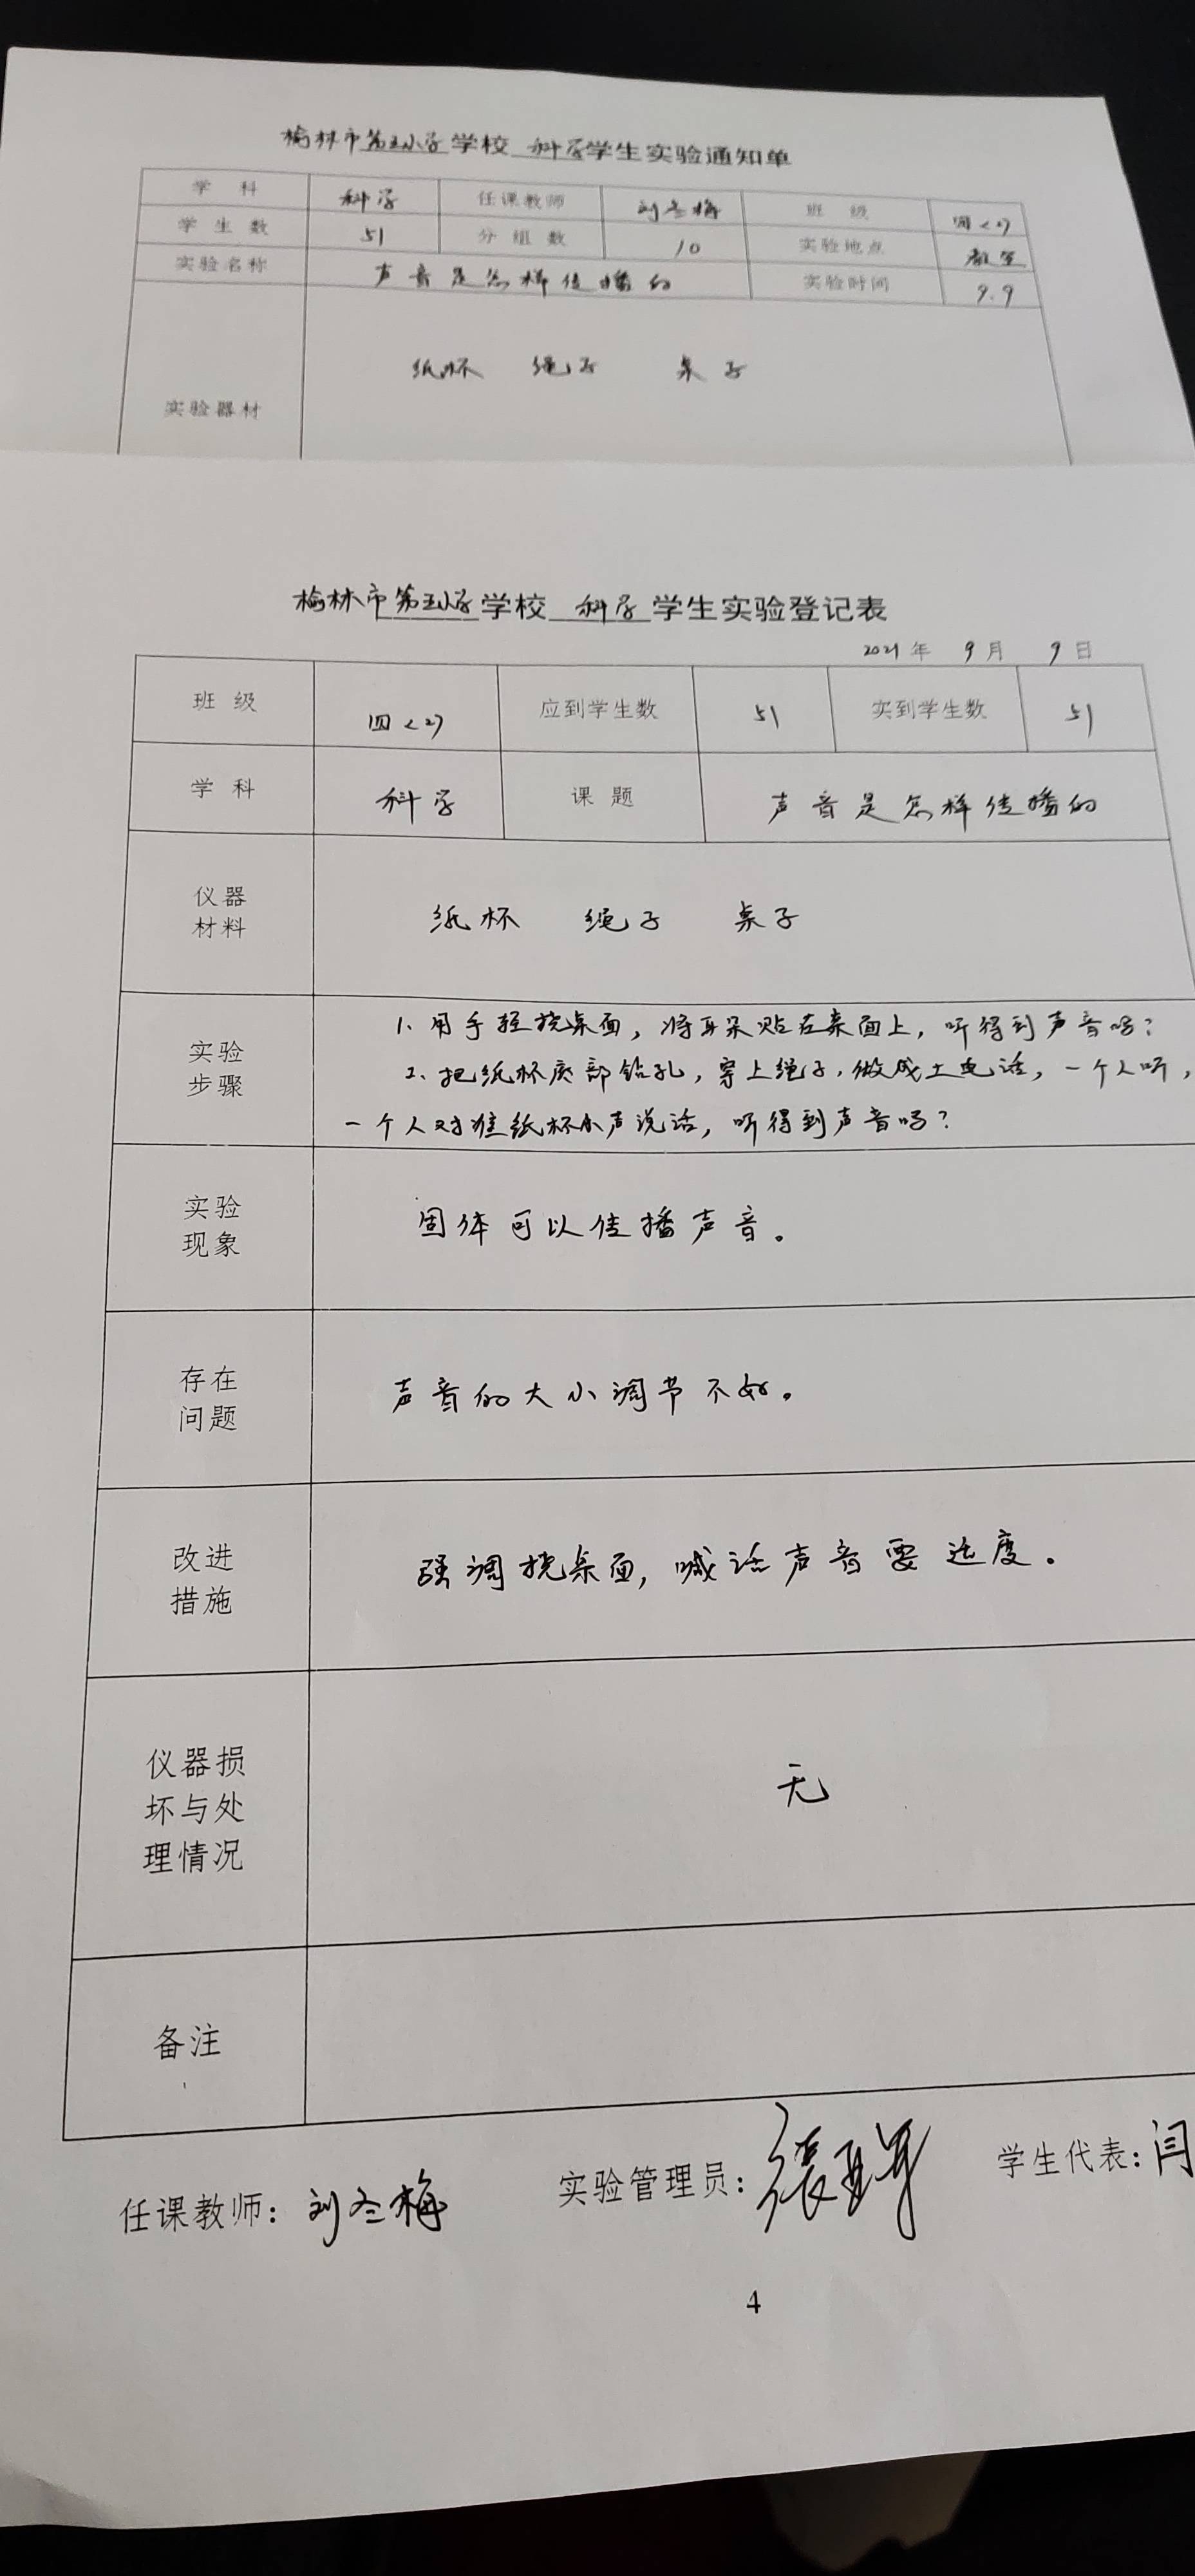 榆林市第五小学学校 科学学生实验通知单
学 科 科学 任课教师 刘冬梅 班 级 四<2>
学 生 数 51 分 组 数 10 实验地点 教室
实验名称 声音是怎样传播的 实验时间 9.9
实验器材 纸杯 绳子 桌子
榆林市第五小学学校 科学 学生实验登记表
2021年 9月 9日
班 级 四<2> 应到学生数 51 实到学生数 51
学 科 科学 课 题 声音是怎样传播的
仪器
材料
纸杯 绳子 桌子
实验
步骤
1、用手轻挠桌面，将耳朵贴在桌面上，听得到声音吗？
2、把纸杯底部钻孔，穿上绳子，做成土电话，一个人听，
一个人对准纸杯小声说话，听得到声音吗？
实验
现象
固体可以传播声音。
存在
问题
声音的大小调节不好。
改进
措施
强调挠桌面，喊话声音要适度。
仪器损
坏与处
理情况
无
备注
任课教师：刘冬梅 实验管理员： 学生代表：闫
4